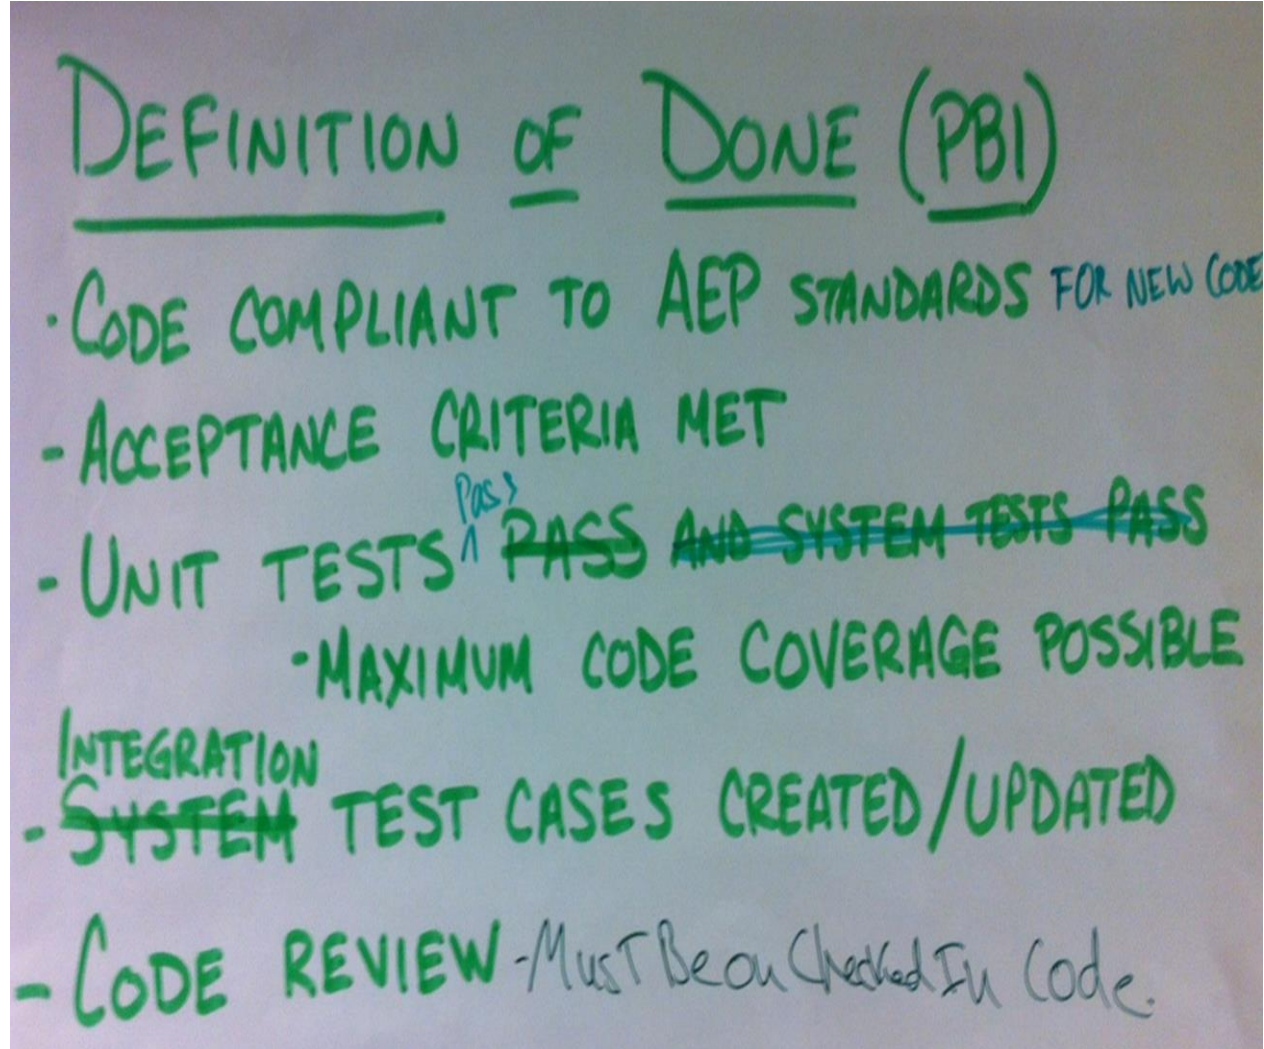 DEFINITION OF DONE (PBI)
· CODE COMPLIANT TO AEP STANDARDS FOR NEW CODE
- ACCEPTANCE CRITERIA MET
- UNIT TESTS ^ Pass PASS AND SYSTEM TESTS PASS
- MAXIMUM CODE COVERAGE POSSIBLE
INTEGRATION
- SYSTEM TEST CASES CREATED/UPDATED
- CODE REVIEW - Must Be on Checked In Code.